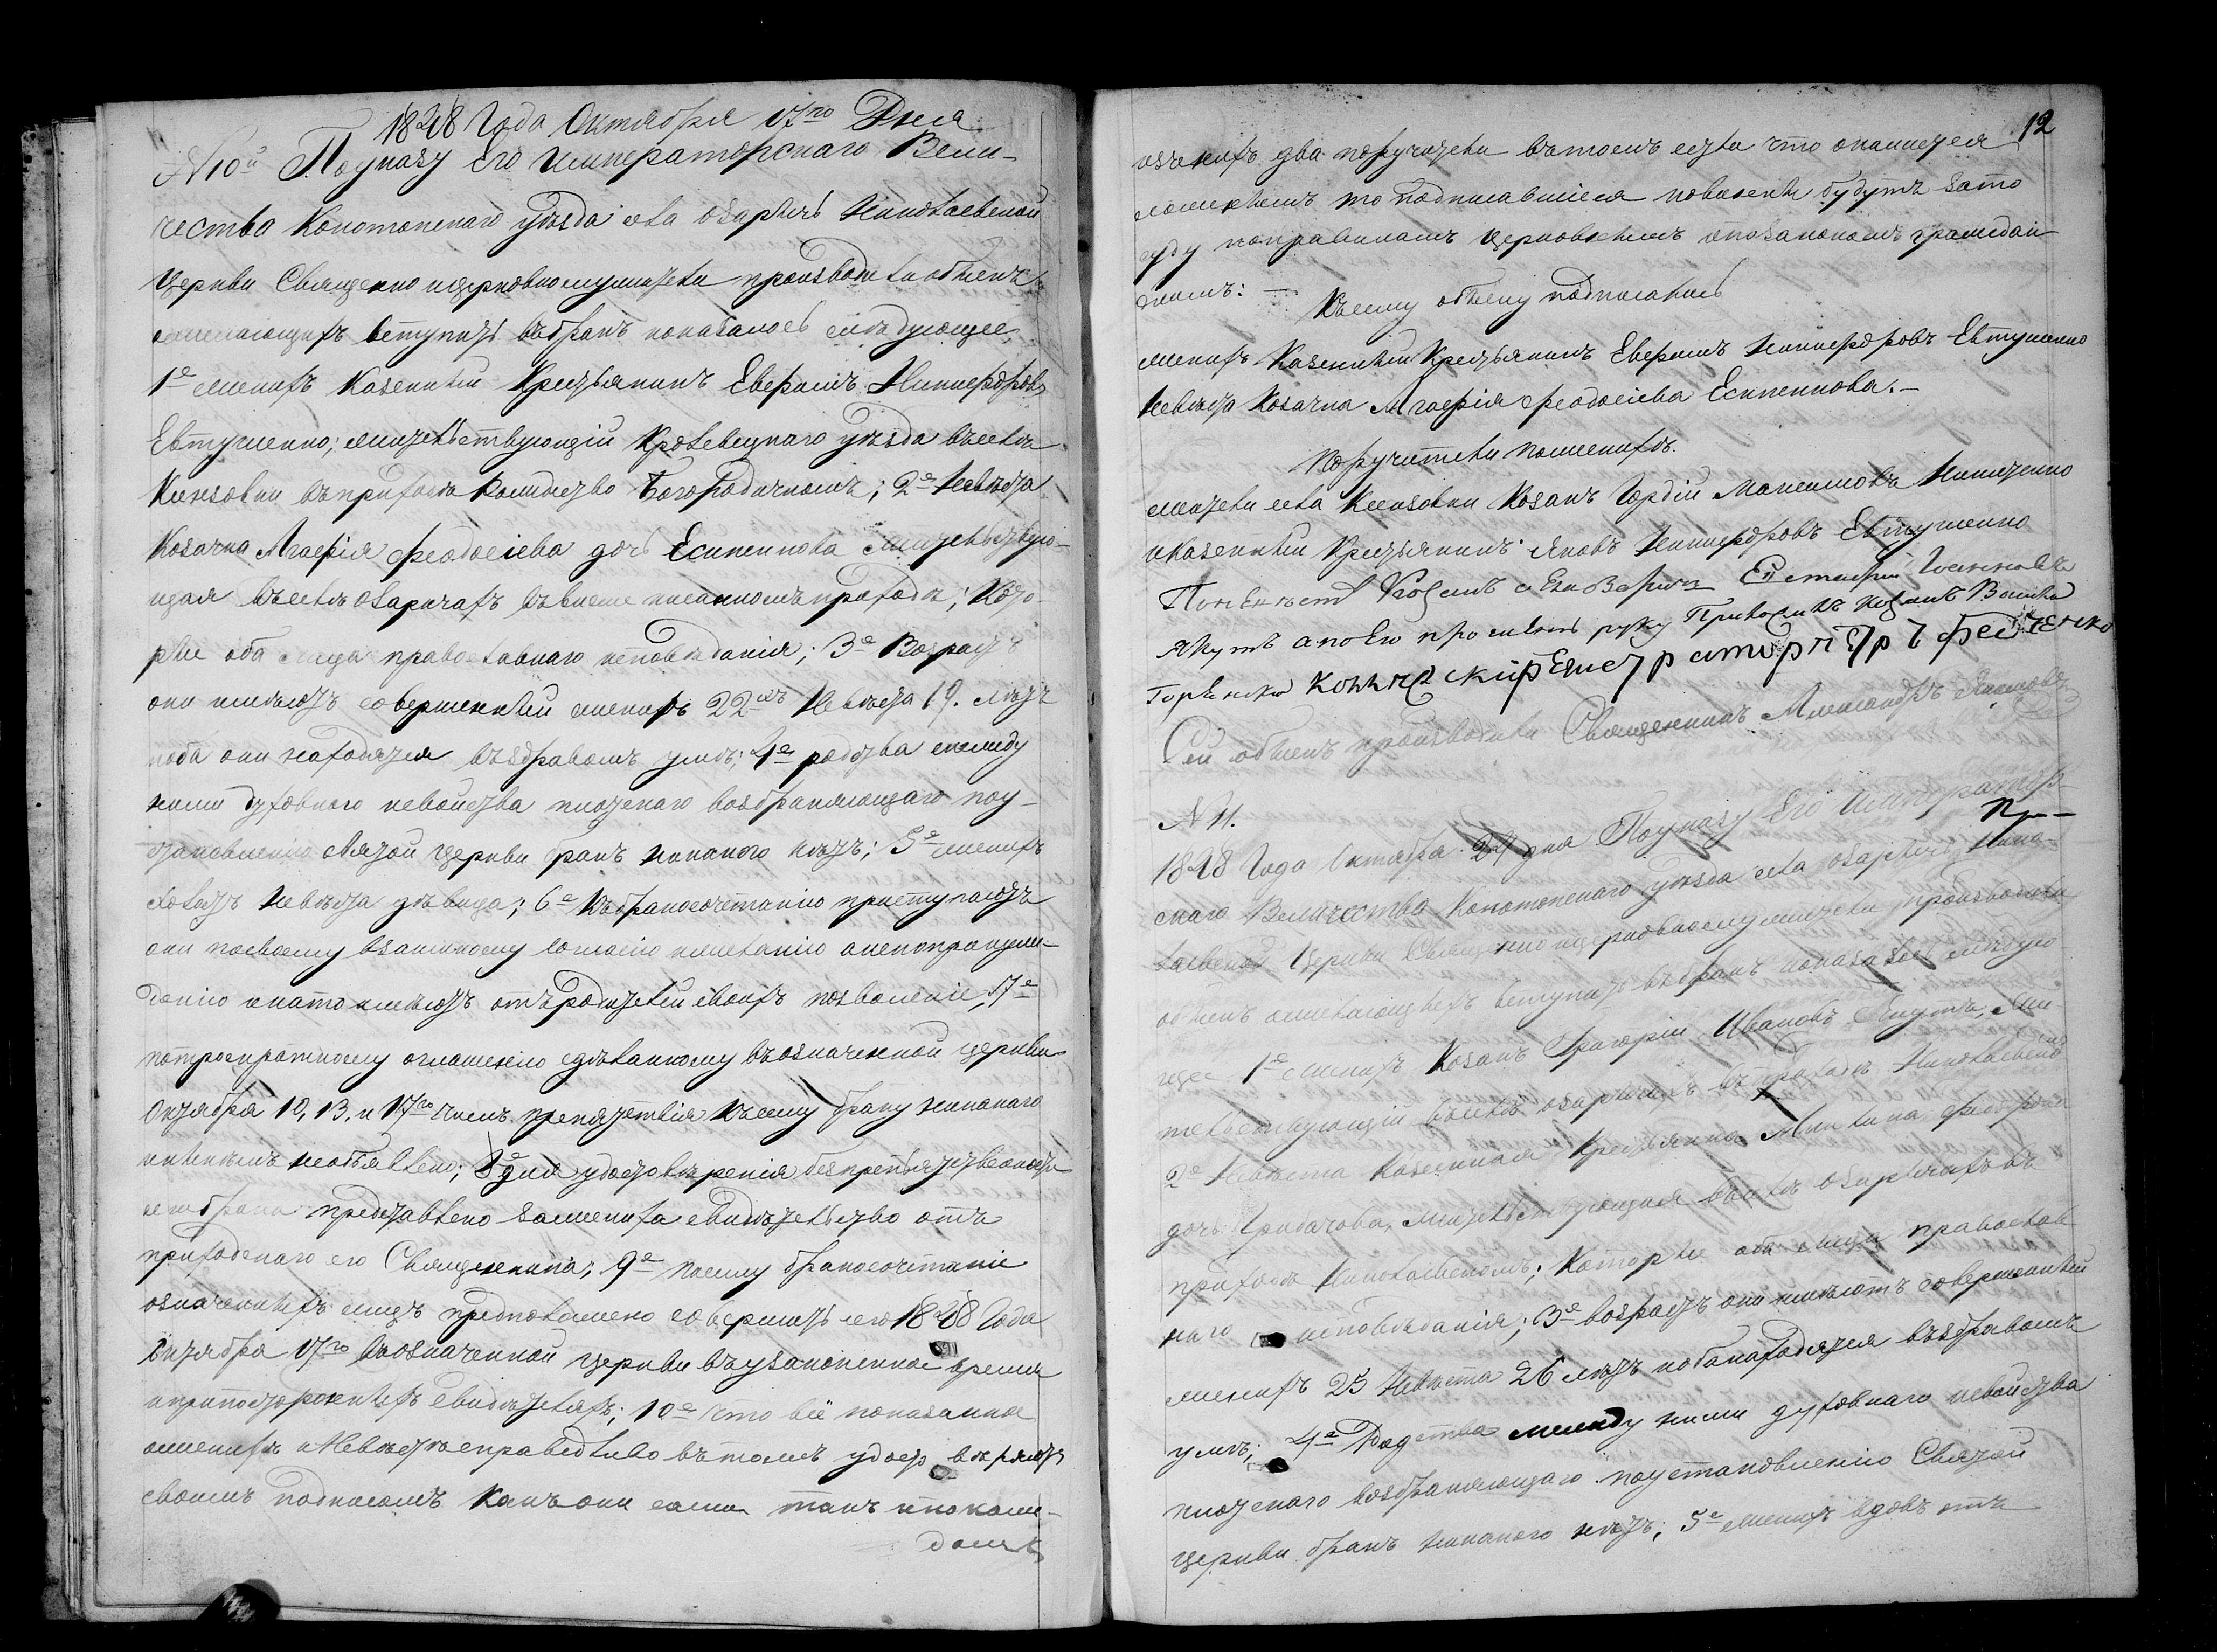 1848 Года Октября 17го Дня
№ 10й Поуказу Его Императорскаго Вели-
чества Конотопскаго уѣзда села Озаричь Николаевской
Церкви Священно ицерковнослужители производили обыскъ
желающихъ вступить вбракъ показалось слѣдующее,
1е женихъ Казенный Крестьянинъ Евфимъ Никифоровъ
Евтушенко, жительствующій Кролевецкаго уѣзда вселѣ
въприходѣ Рождество Богородичномъ; 2е Невѣста
Козачка Агафія Феодосіева дочь Есипенкова Жительствую-
щая вселѣ Озаричахъ ввыше писанномъ приходѣ; Кото-
рые оба лица православнаго исповѣданія; 3е Возрастъ
они имѣютъ совершенный женихъ 22хъ Невѣста 19. лѣтъ
иоба они находятся въздравомъ умѣ; 4е родства между
ними духовнаго исвойства плотскаго возбраняющаго поу-
становленію святой Церкви бракъ никакого нѣтъ; 5е женихъ
холостъ невѣста дѣвица; 6е Къбракосочетанію приступаютъ
они посвоему взаимному согласію ижеланію анепопринуж-
денію инато имѣютъ отъродителей своихъ позволеніе; 7е
потроекратному оглашенію сдѣланному въозначенной церкви
Октября 10, 13, и 17го чиселъ препятствія Ксему браку никакаго
никѣмъ необъявлено; 8е для удостовѣренія безпрепятственности
сегобрака представлено зажениха свидѣтельство отъ
приходскаго его Священника; 9е посему бракосочетаніе
означенныхъ лицъ предположено совершить сего 1848 Года
Октября 17го въозначенной церкви въузаконенное время
ипрепосторонныхъ свидѣтеляхъ; 10е что всё показанное
оженихѣ иНевѣстѣ справедливо втомъ удостовѣряютъ
своимъ подписомъ Какъ они сами такъ ипокаж-
домъ

12
изънихъ два поручители втомъ если что окажется
ложнымъ то подписавшіеся повинны будутъ зато
суду поправиламъ церковнымъ ипозаконамъ граждан-
скимъ: — Ксему обыску подписались
женихъ Казенный Крестьянинъ Евфимъ Никифоровъ Евтушенко
Невѣста Козачка Агафія Феодосіева Есипенкова. —
поручители поженихѣ.
жители села Козакъ Гордій Никитенко
иказенный Крестьянинъ Яковъ Никифоровъ Евтушенко
Поневѣстѣ Козакъ Евстафій Іоанновъ
Якутъ апоего прозьбѣ руку Приложилъ козакъ
коллежскій регистраторъ Петръ
Сей обыскъ производилъ Священникъ Александръ
№ 11.
1848 Года Октября 24 дня Поуказу Его Император-
скаго Величества Конотопскаго уѣзда села Озаричь Нико-
лаевской Церкви Священно ицерковнослужители производили
обыскъ желающихъ вступить вбракъ показалось слѣдую-
щее 1е Женихъ Козакъ Григорій Ивановъ Якутъ, Жи-
тельствующій вселѣ Озаричахъ вприходѣ Николаевском
2е Невѣста Казенная Крестьянка Феодорова
дочь Грибачова, жительствующая вселѣ Озаричахъ въ
приходѣ Николаевскомъ; Которые оба лица православ-
наго исповѣданія; 3е возрастъ они имѣютъ совершенный
женихъ 25 Невѣста 26 лѣтъ иобанаходятся въздравомъ
умѣ; 4е Родства между ними духовнаго исвойства
плотскаго возбраняющаго поустановленію Святой
Церкви бракъ никакого нѣтъ; 5е женихъ вдовъ отъ